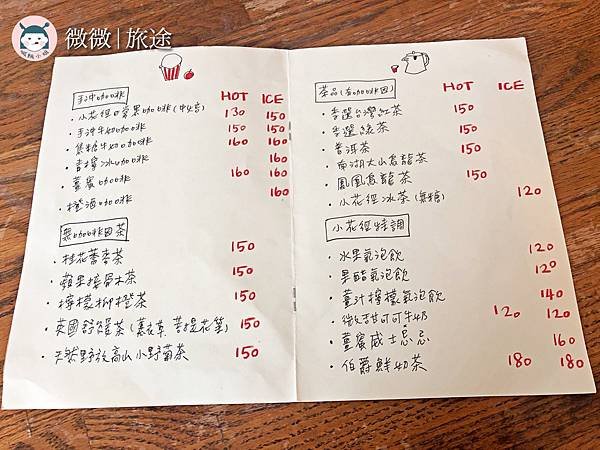 微微|旅途
手沖咖啡 HOT ICE
・小花徑日常黑咖啡(中焙) 130 150
・手沖牛奶咖啡 150 150
・焦糖牛奶咖啡 160 160
・青檸冰咖啡 160
・薑蜜咖啡 160 160
・橙酒咖啡 160
無咖啡因茶
・桂花蕎麥茶 150
・蘋果接骨木茶 150
・檸檬柳橙茶 150
・英國玫瑰茶 150
・天然野放高山小野菊茶 150
茶品(含咖啡因) HOT ICE
・手選台灣紅茶 150
・手選綠茶 150
・普洱茶 150
・南湖大山烏龍茶 150
・鳳凰烏龍茶 150
・小花徑冰茶(無糖) 120
小花徑特調
・水果氣泡飲 120
・果醋氣泡飲 120
・薑汁檸檬氣泡飲 140
・微甜可可牛奶 120 120
・薑蜜威士忌 160
・伯爵鮮奶茶 180 180